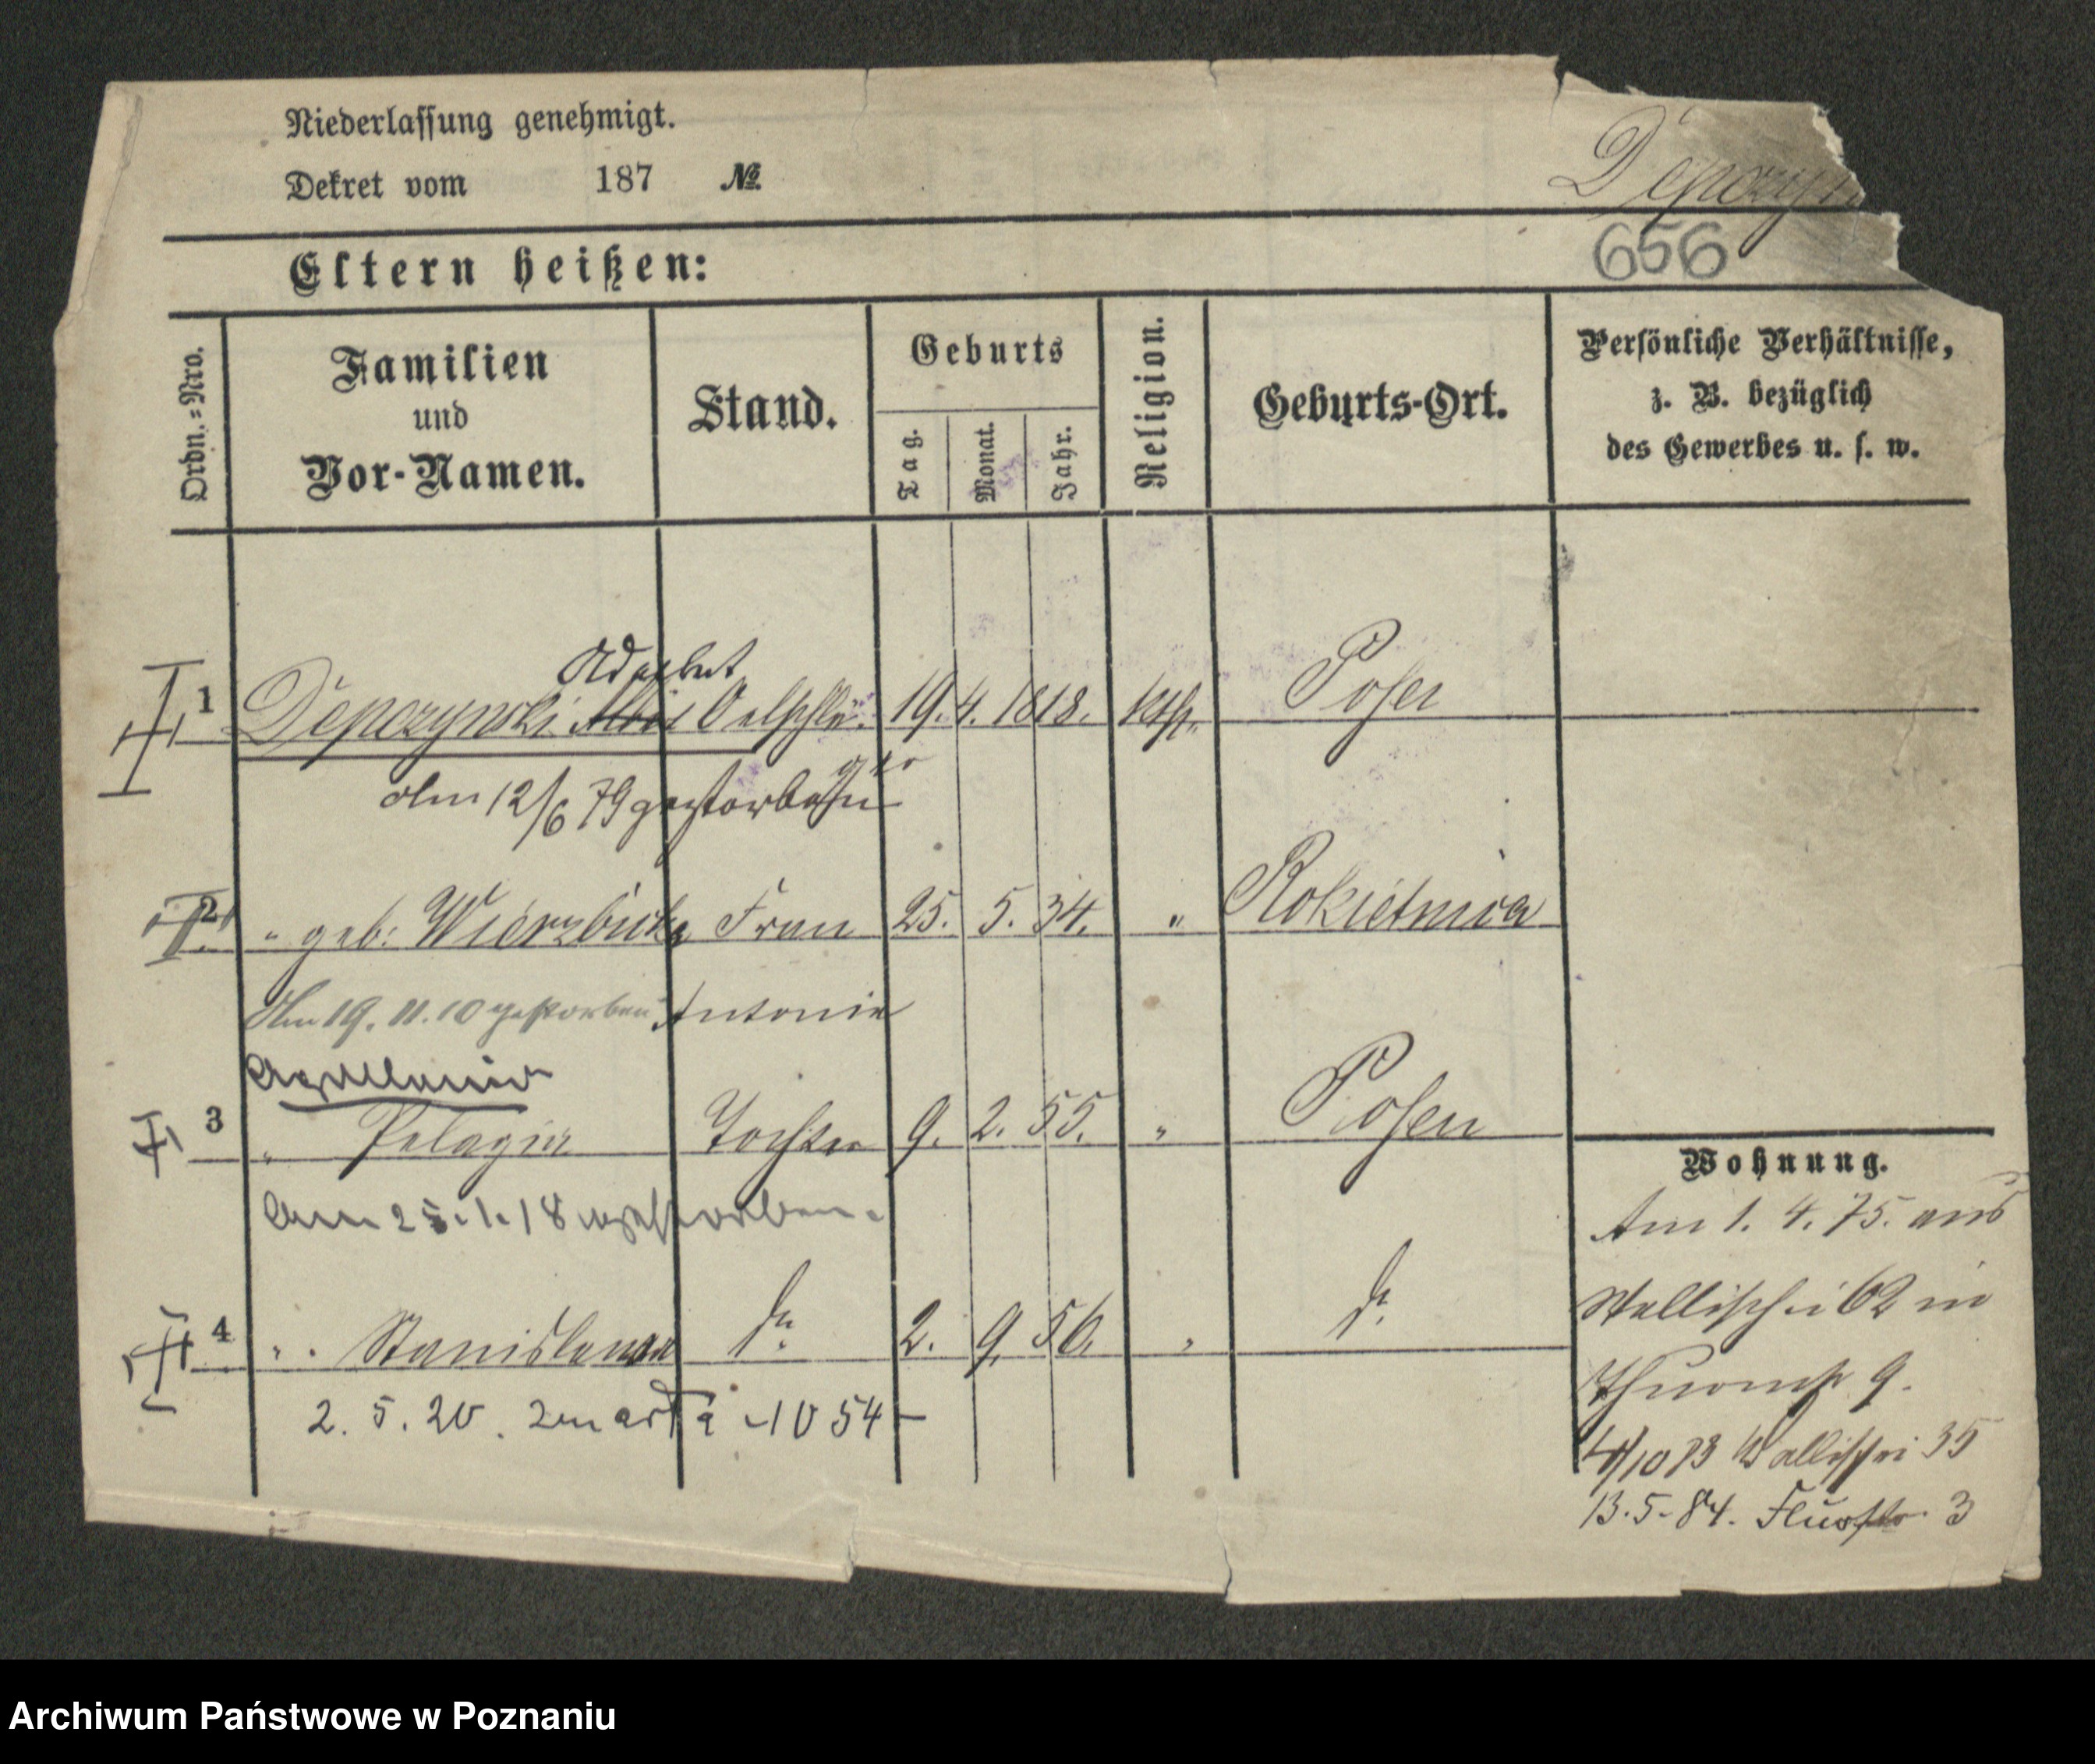 Niederlassung genehmigt.
Dekret vom 187 №
Depczyn
656
Eltern heißen:
Ordn.=Nro.
Familien
und
Vor-Namen.
Stand.
Geburts
Tag.
Monat.
Jahr.
Religion.
Geburts-Ort.
Persönliche Verhältnisse,
z. B. bezüglich
des Gewerbes u. s. w.
Adalbert
1 Depczynski 19. 4. 1818. kth. Posen
Am 12/6 79 gestorben
2 " geb: Wierzbicka Frau 25. 5. 34. " Rokietnica
Am 19. 11. 10 gestorben Antonie
3 " Pelagia Tochter 9. 2. 55. " Posen
Am 25. 1. 18 gestorben.
4 " . Stanislawa do 2. 9. 56. " do
2. 5. 20. zmarła 1054
Wohnung.
Am 1. 4. 75. aus
Wallischei 62 in
9.
4/10 83 Wallischei 35
13. 5. 84. Flusstr. 3
Archiwum Państwowe w Poznaniu